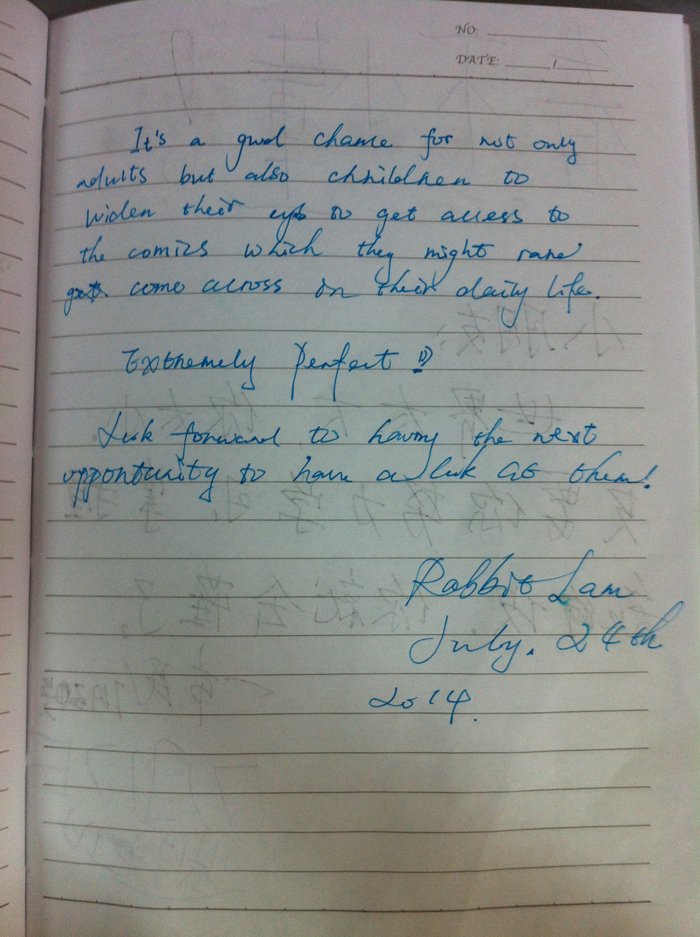 NO:
DATE: /
It's a good chance for not only
adults but also chhildren to
widen their eyes to get access to
the comics which they might rare
come across in their daily life.
Extremely Perfect !!
Look forward to having the next
opportunity to have a look at them!
Rabbit Lam
July. 24th
2014.